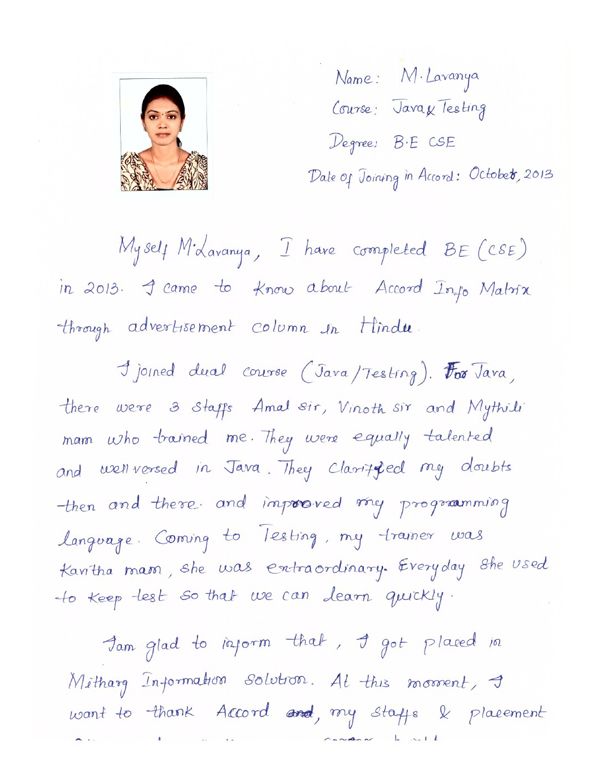 Name: M.Lavanya
Course: Java & Testing
Degree: B.E CSE
Date of Joining in Accord: October, 2013
Myself M.Lavanya, I have completed BE (CSE)
in 2013. I came to know about Accord Info Matrix
through advertisement column in Hindu.
I joined dual course (Java/Testing). For Java,
there were 3 staffs Amal sir, Vinoth sir and Mythili
mam who trained me. They were equally talented
and well versed in Java. They Clarified my doubts
then and there. and improved my programming
language. Coming to Testing, my trainer was
Kavitha mam, she was extraordinary. Everyday she used
to keep test so that we can learn quickly.
Iam glad to inform that, I got placed in
Mitharg Information Solution. At this moment, I
want to thank Accord and, my staffs & placement